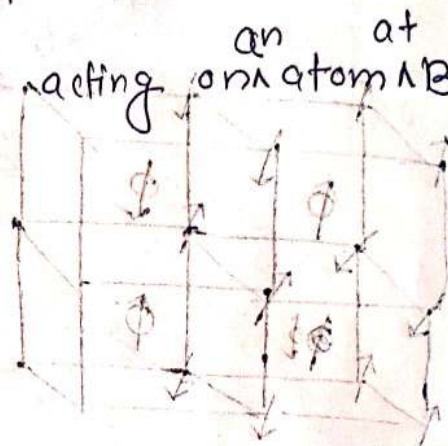 an at
acting on∧ atom ∧ B